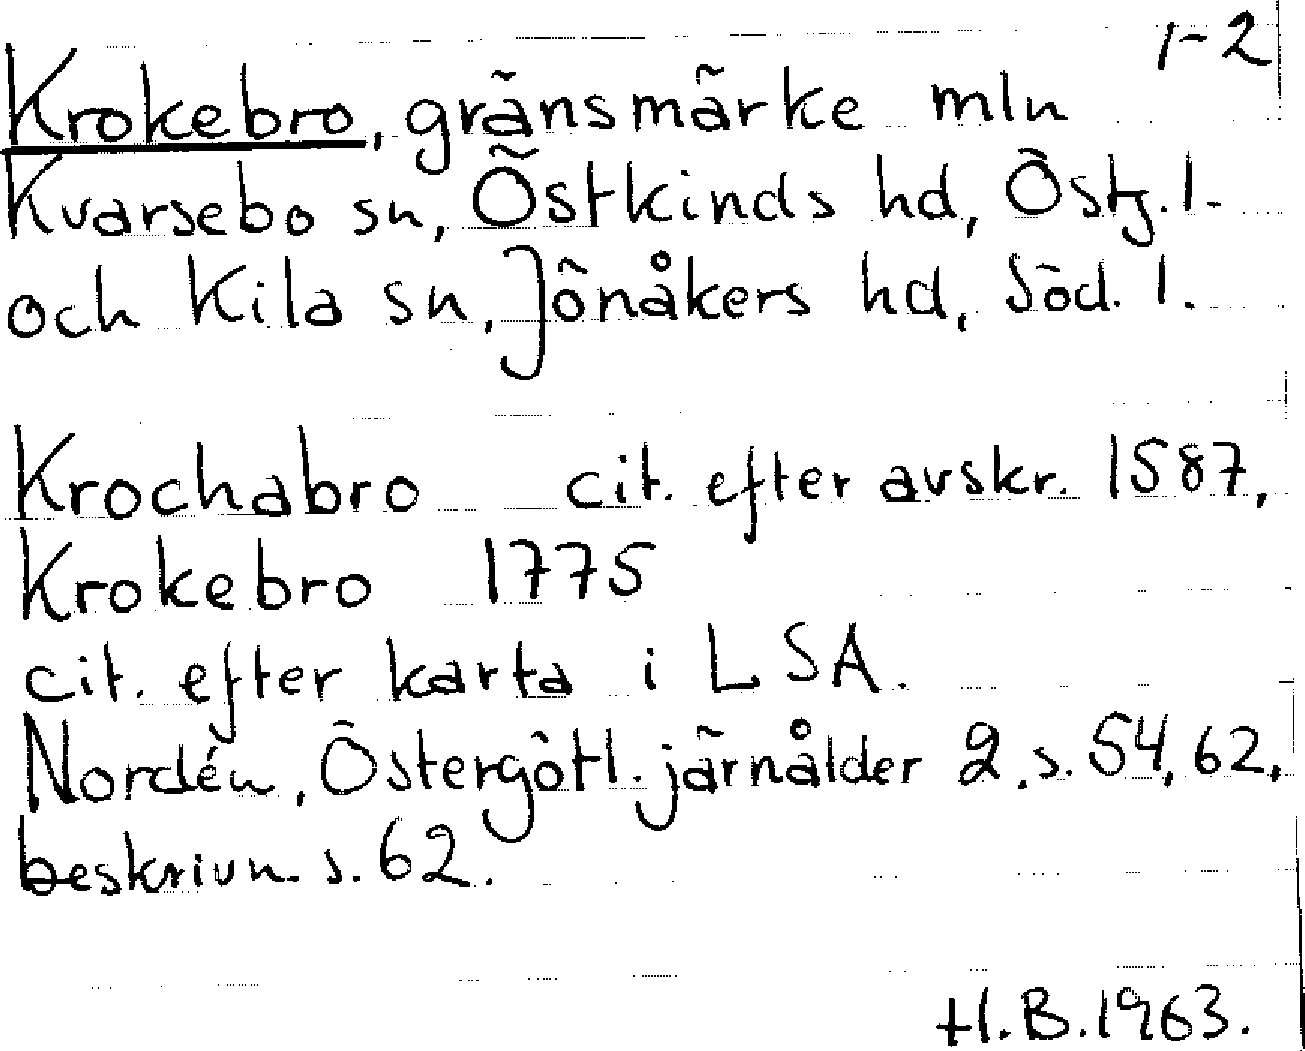 1-2
Krokebro, gränsmärke mln
Kvarsebo sn, Östkinds hd, Östg. l.
och Kila sn, Jönåkers hd, Söd. l.
Krochabro cit. efter avskr. 1587,
Krokebro 1775
cit. efter karta i LSA.
Nordén, Östergötl. järnålder 2, s. 54, 62,
beskrivn. s. 62.
H.B. 1963.